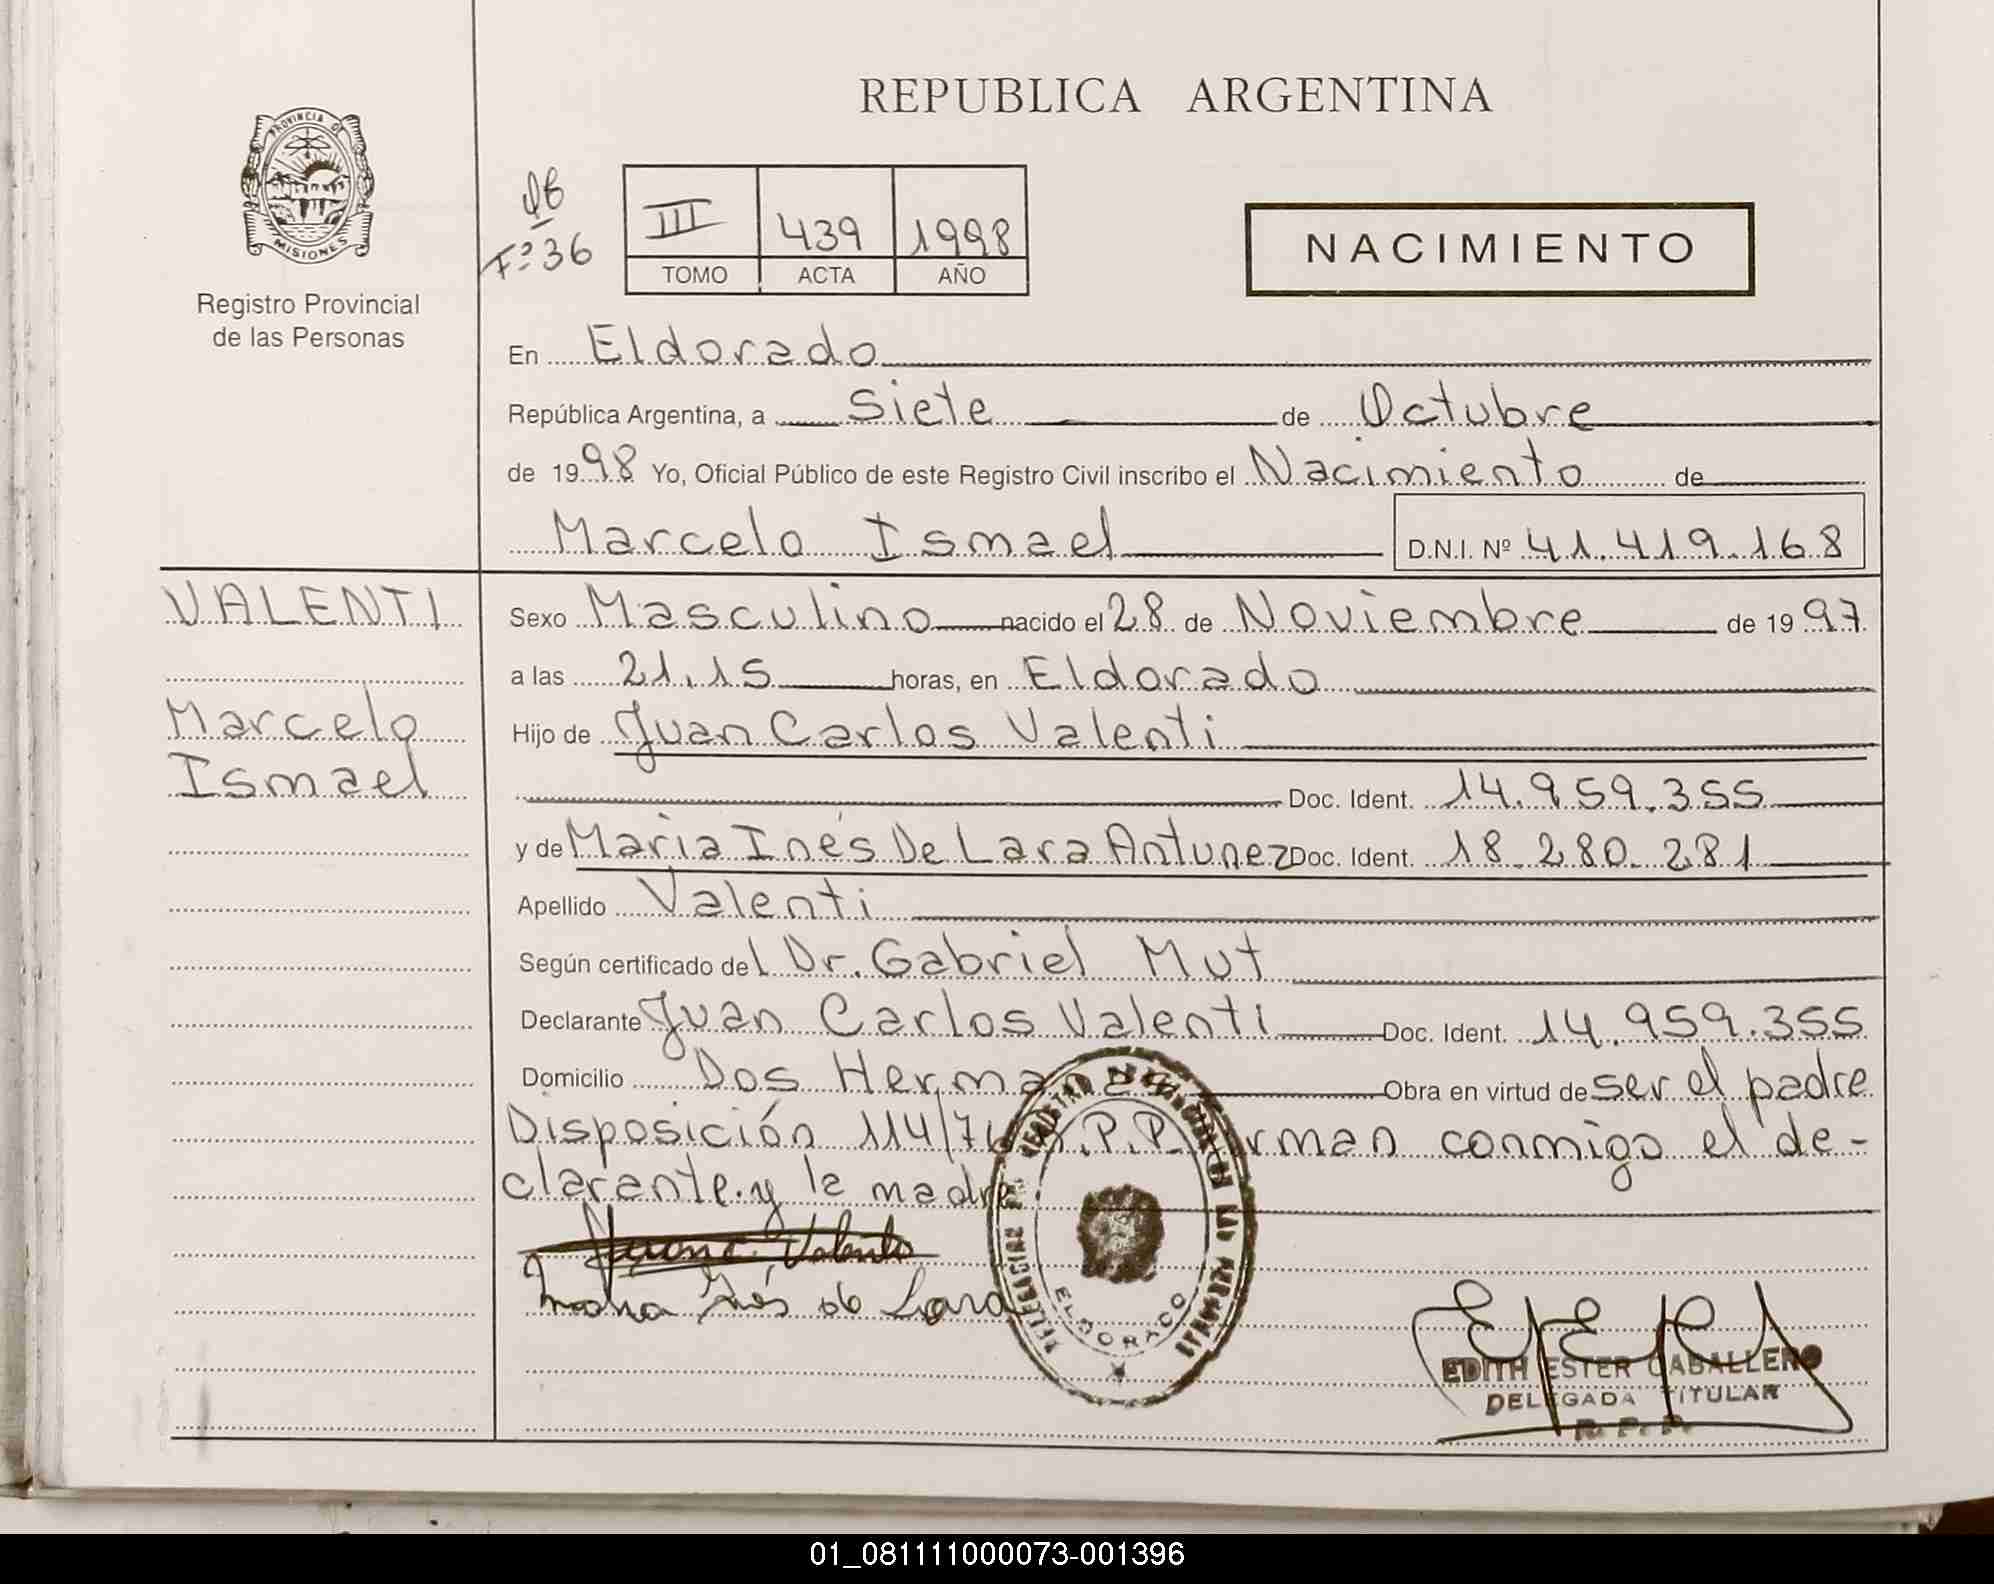 REPUBLICA ARGENTINA
PROVINCIA DE
MISIONES
Registro Provincial
de las Personas
Fº 36
III 439 1998
TOMO ACTA AÑO
NACIMIENTO
En Eldorado
República Argentina, a Siete de Octubre
de 1998 Yo, Oficial Público de este Registro Civil inscribo el Nacimiento de
Marcelo Ismael D.N.I. Nº 41.419.168
VALENTI
Marcelo
Ismael
Sexo Masculino nacido el 28 de Noviembre de 1997
a las 21.15 horas, en Eldorado
Hijo de Juan Carlos Valenti
Doc. Ident. 14.959.355
y de Maria Inés De Lara Antunez Doc. Ident. 18.280.281
Apellido Valenti
Según certificado del Dr. Gabriel Mut
Declarante Juan Carlos Valenti Doc. Ident. 14.959.355
Domicilio Dos Hermanas Obra en virtud de ser el padre
Disposición 114/ R.P.P. Firman conmigo el de-
clarante y la madre
Maria Inés de Lara
ELDORADO
EDITH ESTER CABALLERO
DELEGADA TITULAR
R. P. P.
01_081111000073-001396